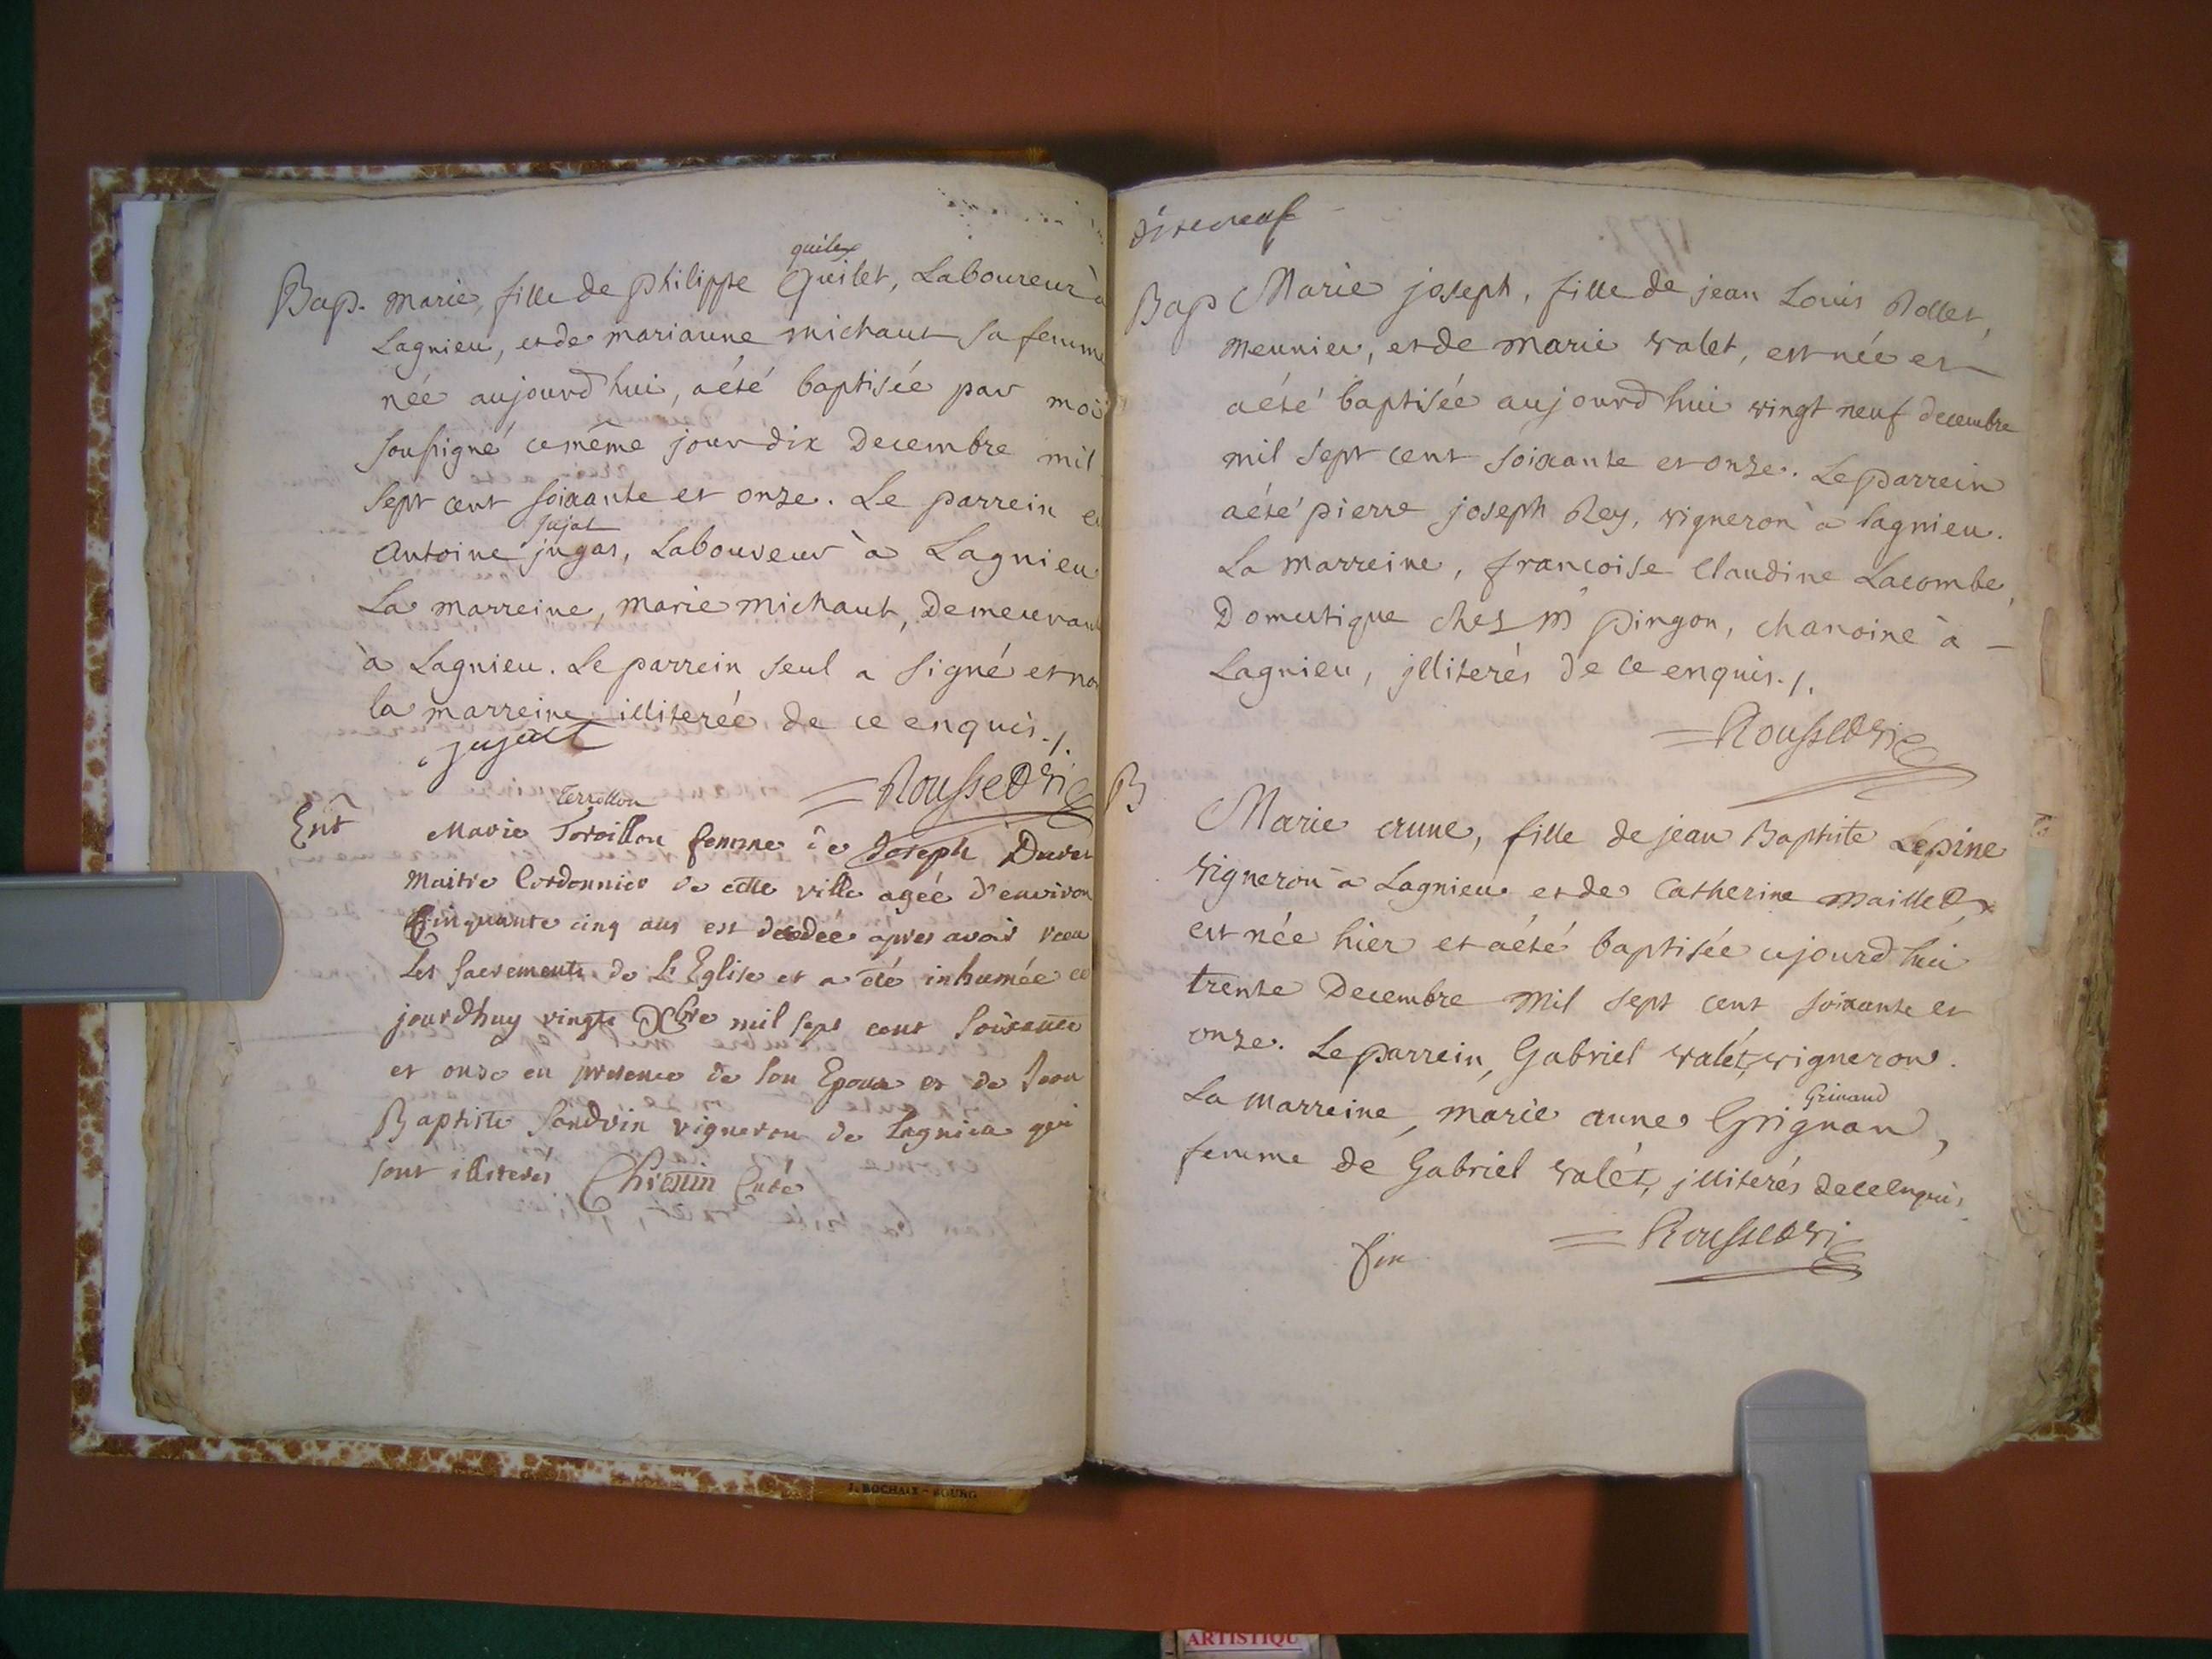 quilex
Bap. Marie, fille de philippe Guilet, Laboureur à
Lagnieu, et de marianne michaut sa femme
née aujourd'hui, a été baptisée par moi
soussigné ce même jour dix Decembre mil
sept cent soixante et onze. Le parrein
jujat
Antoine jugas, Laboureur à Lagnieu
La marreine, marie michaut, Demeurant
à Lagnieu. Le parrein seul a signé et non
la marreine illiterée de ce enquis./.
jujat
=Roussetri
Terrollon
Ent Marie Toroillon femme de Joseph Duret
Maitre Cordonnier de cette ville agée d'environ
Cinquante cinq ans est decedée apres avoir receu
Les sacrements de L'Eglise et a été inhumée ce
jourd'huy vingte Xbre mil sept cent soixante
et onze en presence de son Epoux et de Jean
Baptiste Sandrin vigneron de Lagnieu qui
sont illiterés Chrétin Curé
dixeneuf
Bap Marie joseph, fille de jean Louis Rollet,
meunier, et de marie valet, est née et
a été baptisée aujourd'hui vingt neuf decembre
mil sept cent soixante et onze. Le parrein
a été pierre joseph Rey, vigneron à lagnieu.
La marreine, francoise Claudine Lacombe,
Domestique chez mr pingon, chanoine à -
Lagnieu, jlliterés de ce enquis./.
=Roussetri
B
Marie anne, fille de jean Baptiste Lepine
vigneron à Lagnieu et de Catherine maillet,
est née hier et a été baptisée ajourd'hui
trente Decembre mil sept cent soixante et
onze. Le parrein, Gabriel valét, vigneron.
Grinand
La marreine, marie anne Grignan,
femme de Gabriel valét, jlliterés de ce enquis,
=Roussetri
fin
J. ROCHAIX - BOURG
ARTISTIQU